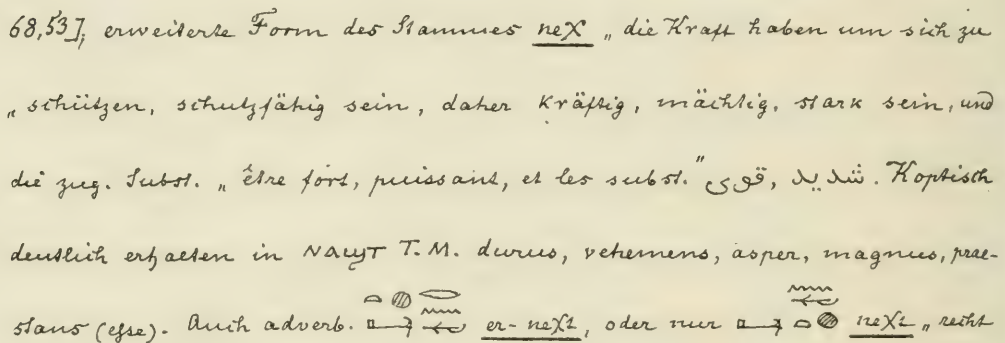 68,53], erweiterte Form des Stammes neχ „die Kraft haben um sich zu
„schützen, schutzfähig sein, daher kräftig, mächtig, stark sein, und
die zug. Subst. „être fort, puissant, et les subst." قوى, شديد. Koptisch
deutlich erhalten in ⲛⲁϣⲧ T.M. durus, vehemens, asper, magnus, prae-
stans (esse). Auch adverb. er-neχt, oder nur neχt „recht